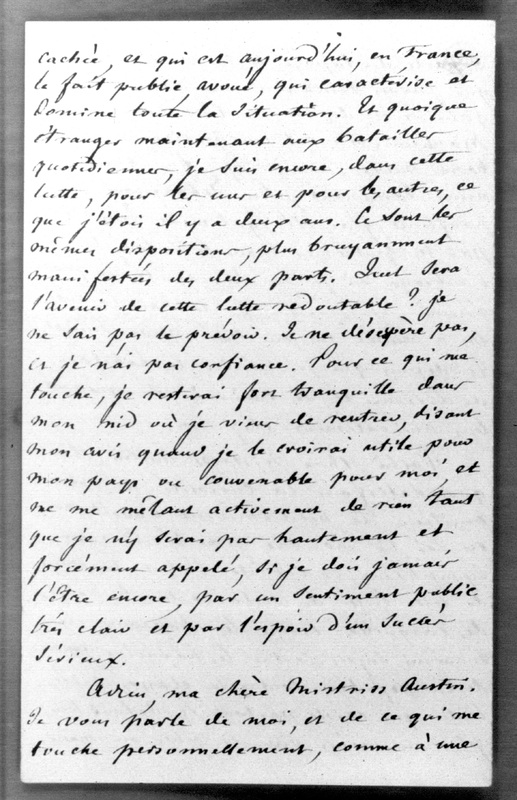 cachée, et qui est aujourd'hui, en France,
le fait public, avoué, qui caractérise et
domine toute la situation. Et quoique
étranger maintenant aux batailles
quotidiennes, je suis encore, dans cette
lutte, pour les uns et pour les autres, ce
que j'étois il y a deux ans. Ce sont les
mêmes dispositions, plus bruyamment
manifestées des deux parts. Quel sera
l'avenir de cette lutte redoutable ? je
ne sais pas le prévoir. Je ne désespère pas,
et je n'ai pas confiance. Pour ce qui me
touche, je resterai fort tranquille dans
mon nid où je viens de rentrer, disant
mon avis quand je le croirai utile pour
mon pays ou convenable pour moi, et
ne me mêlant activement de rien tant
que je n'y serai pas hautement et
forcément appelé, si je dois jamais
l'être encore, par un sentiment public
très clair et par l'espoir d'un succès
sérieux.
Adieu, ma chère Mistriss Austin.
Je vous parle de moi, et de ce qui me
touche personnellement, comme à une